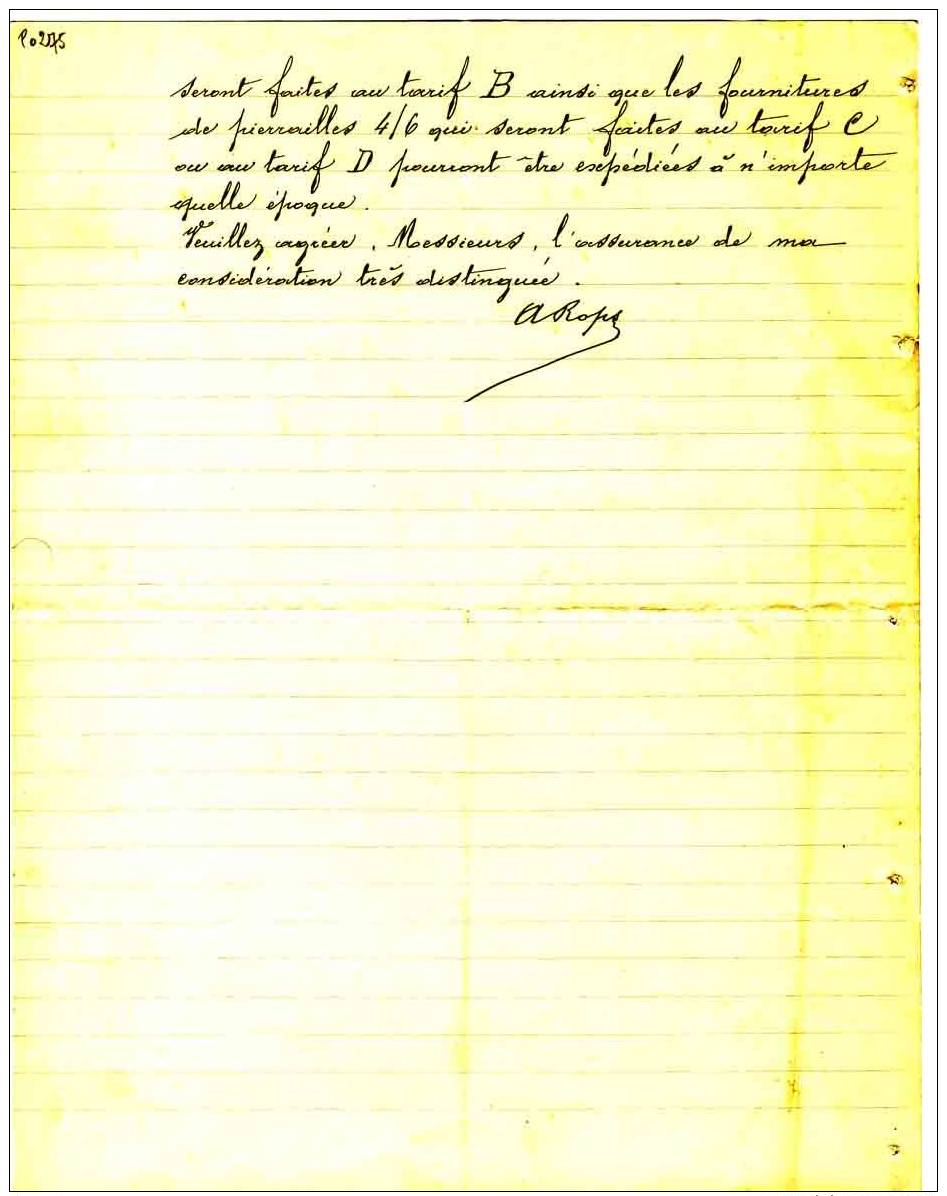 seront faites au tarif B ainsi que les fournitures
de pierrailles 4/6 qui seront faites au tarif C
ou au tarif D pourront être expédiées à n'importe
quelle époque.
Veuillez agréer, Messieurs, l'assurance de ma
considération très distinguée.
A Rops